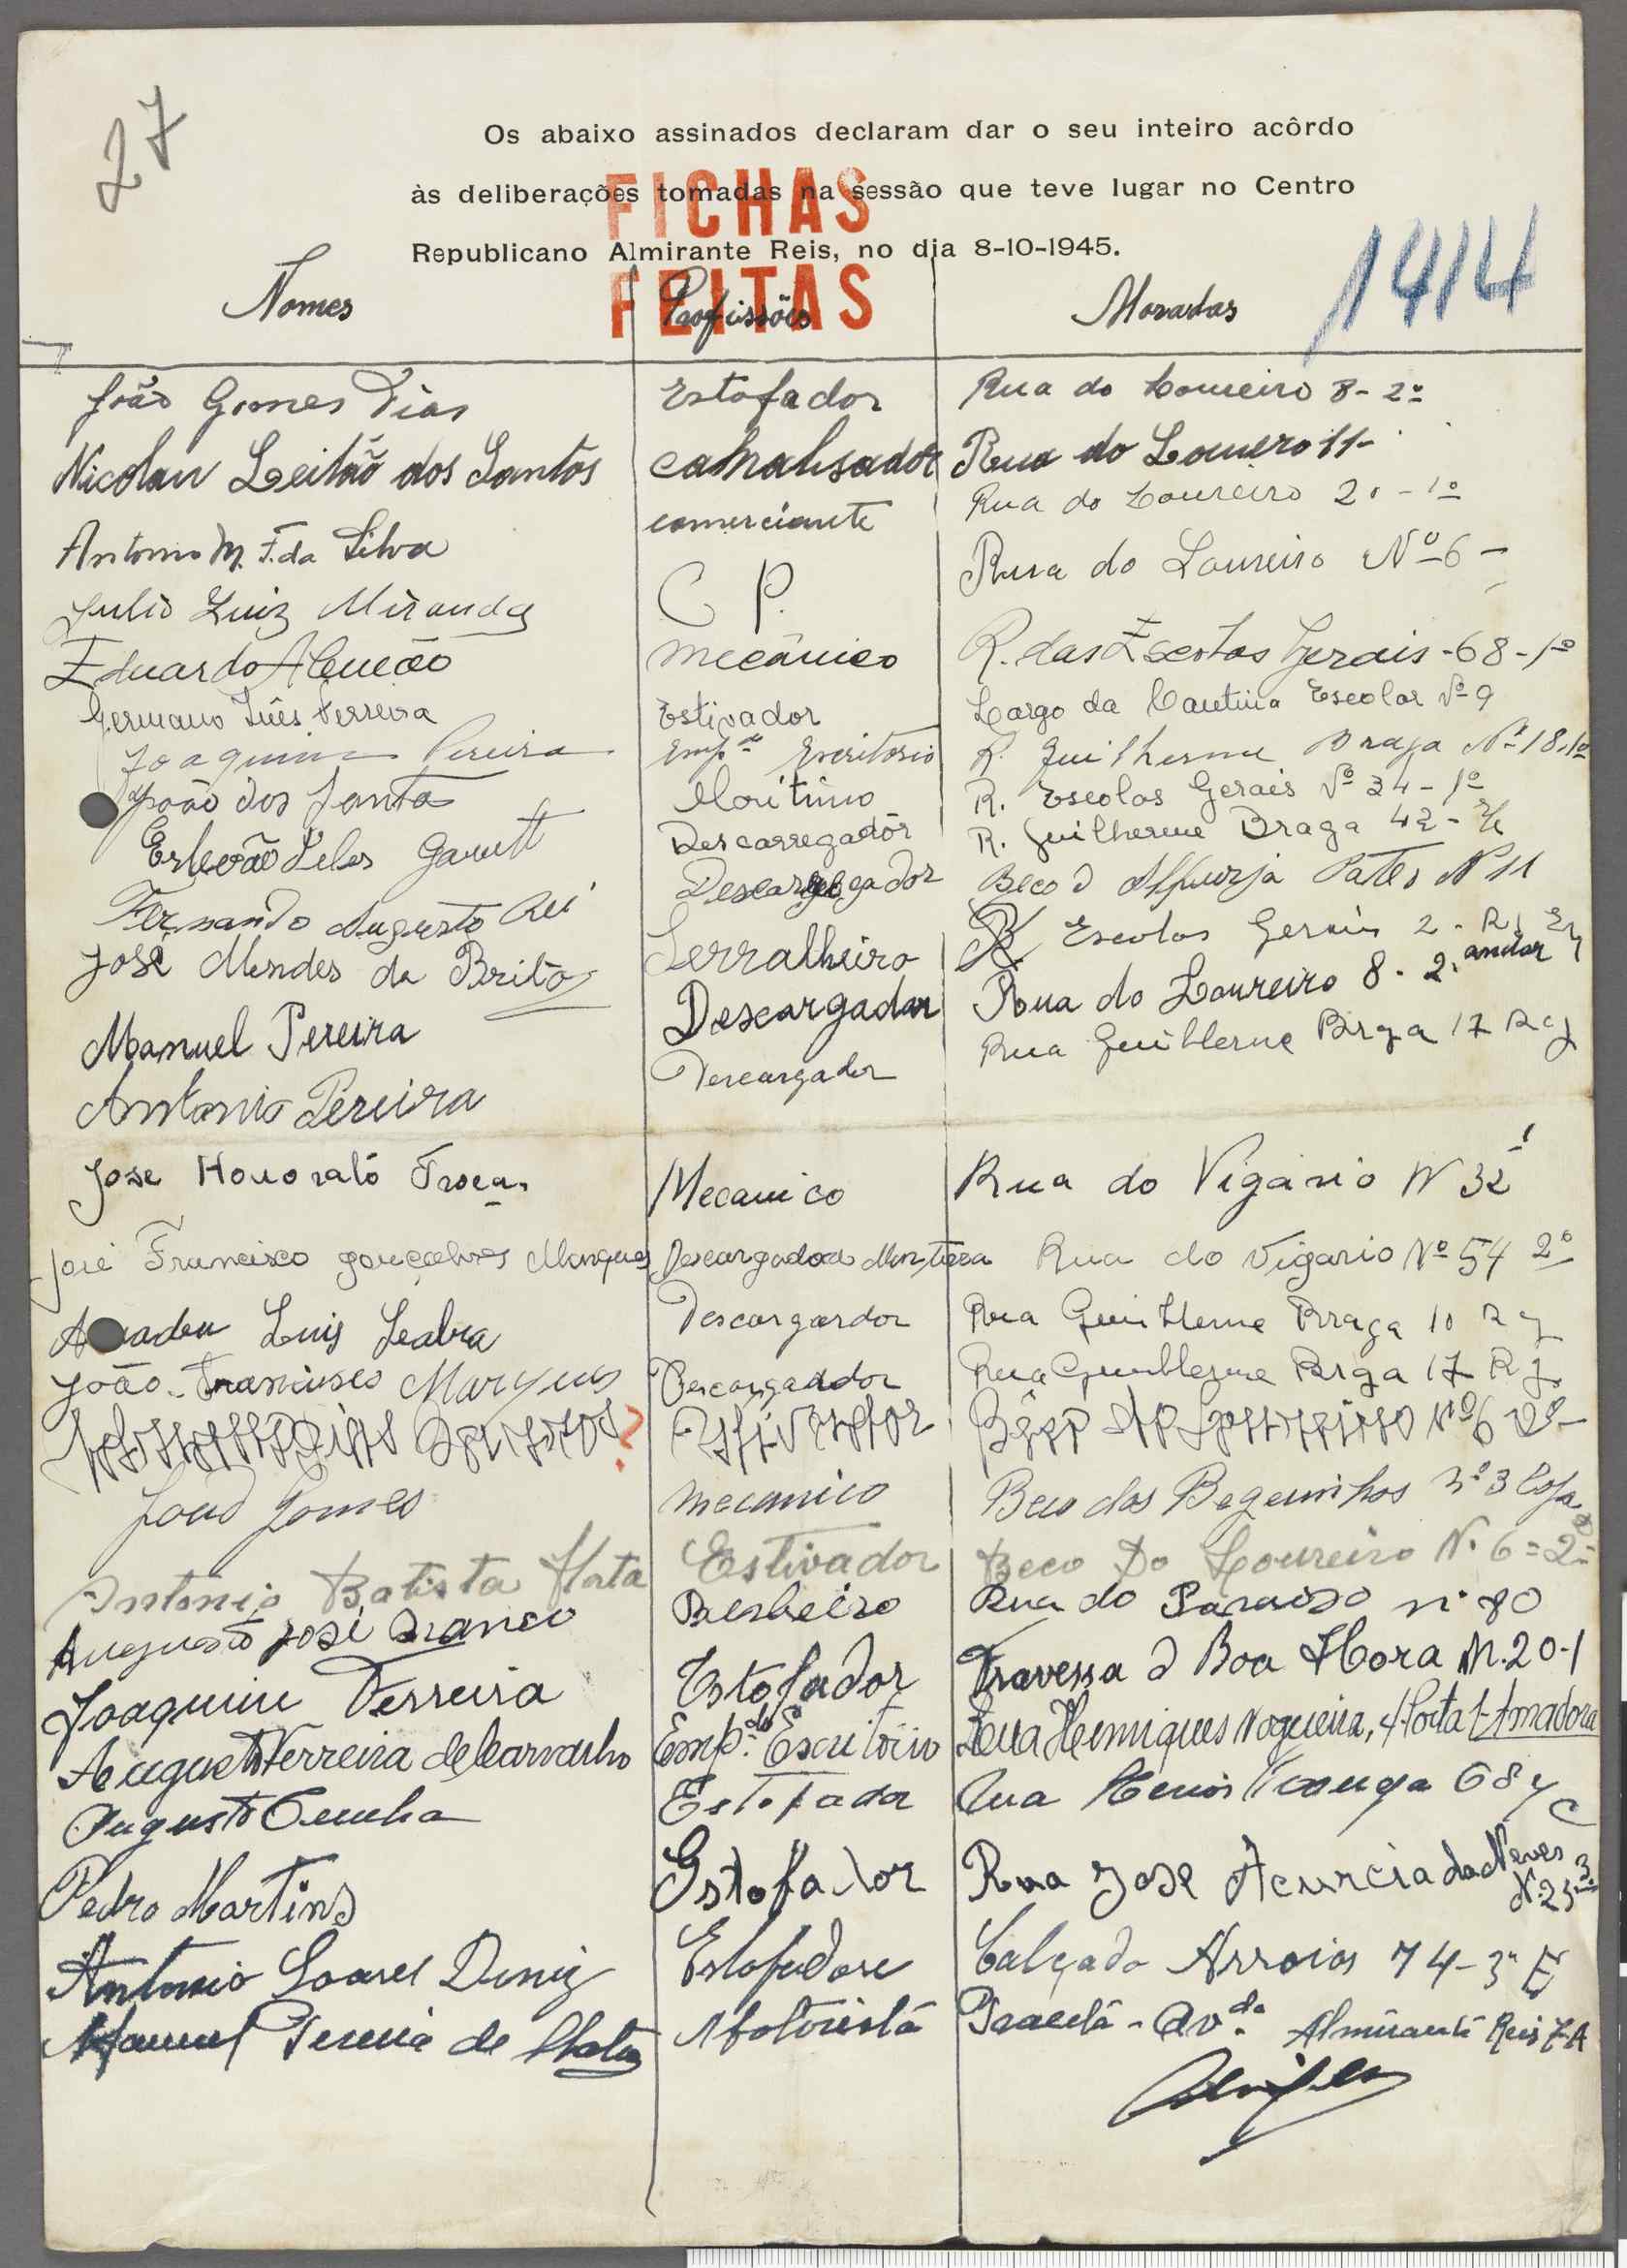 27
Os abaixo assinados declaram dar o seu inteiro acôrdo
às deliberações tomadas na sessão que teve lugar no Centro
Republicano Almirante Reis, no dia 8-10-1945.
FICHAS
FEITAS
1414
Nomes Profissões Moradas
João Gomes Dias Estofador Rua do Loureiro 8-2º
Nicolau Leitão dos Santos canalisador Rua do Loureiro 11-
Antonio M. F. da Silva comerciante Rua do Loureiro 20-1º
Julio Luiz Miranda C P. Rua do Loureiro Nº 6-
Eduardo Mecânico R. das Escolas Gerais-68-1º
Germano Inês Ferreira Estivador Largo da Cantina Escolar Nº 9
Joaquim Pereira Empdo Escritório R. Guilherme Braga Nº 18.1º
João dos Santos Maritimo R. Escolas Gerais Nº 34-1º
Estevão Teles Descarregador R. Guilherme Braga 42-
Fernando Augusto Rei Descaregador Beco d N 11
José Mendes da Brito Serralheiro R Escolas Gerais 2-
Manuel Pereira Descargador Rua do Loureiro 8-2. andar
Antonio Pereira Descargador Rua Guilherme Brga 17
Jose Honorató Mecanico Rua do Vigário N 32
José Francisco gonçalves Marques Descargador Rua do Vigario Nº 54 2º
Luis Seabra Descargardor Rua Guilherme Braga 10
João Marques Descargador Rua Guilherme Brga 17
? Nº 6 2º
João Gomes mecanico Beco dos Beguinhos nº 3
Antonio Batista Mata Estivador Beco Do Loureiro N. 6=2º
Augusto José Branco Barbeiro Rua do Paraizo nº 80
Joaquim Ferreira Estofador Travessa d Boa Hora N.20-1
Augusto Ferreira de Carvalho Empdo Escritório Rua Henriques Nogueira, 4 Porta 1-Amadora
Augusto Cunha Estofador Rua 68
Pedro Martins Estofador Rua José Acurcia das Neves N.25-3º
Antonio Soares Diniz Estofador Calçada Arroios 74-3º E
Manuel Pereira de Matos Motorista Av.da Almirante Reis 7A